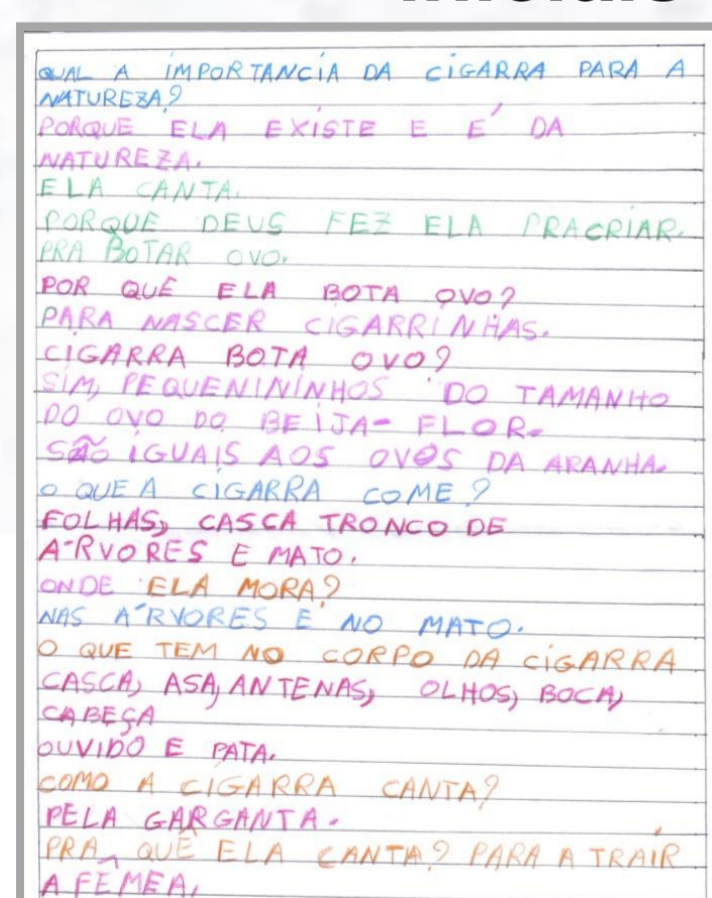 QUAL A IMPORTANCIA DA CIGARRA PARA A
NATUREZA?
PORQUE ELA EXISTE E É DA
NATUREZA.
ELA CANTA.
PORQUE DEUS FEZ ELA PRACRIAR.
PRA BOTAR OVO.
POR QUÊ ELA BOTA OVO?
PARA NASCER CIGARRINHAS.
CIGARRA BOTA OVO?
SIM, PEQUENININHOS DO TAMANHO
DO OVO DO BEIJA-FLOR.
SÃO IGUAIS AOS OVOS DA ARANHA.
O QUE A CIGARRA COME?
FOLHAS, CASCA TRONCO DE
ÁRVORES E MATO.
ONDE ELA MORA?
NAS ÁRVORES E NO MATO.
O QUE TEM NO CORPO DA CIGARRA
CASCA, ASA, ANTENAS, OLHOS, BOCA,
CABEÇA
OUVIDO E PATA.
COMO A CIGARRA CANTA?
PELA GARGANTA.
PRA QUÊ ELA CANTA? PARA ATRAIR
A FÊMEA.